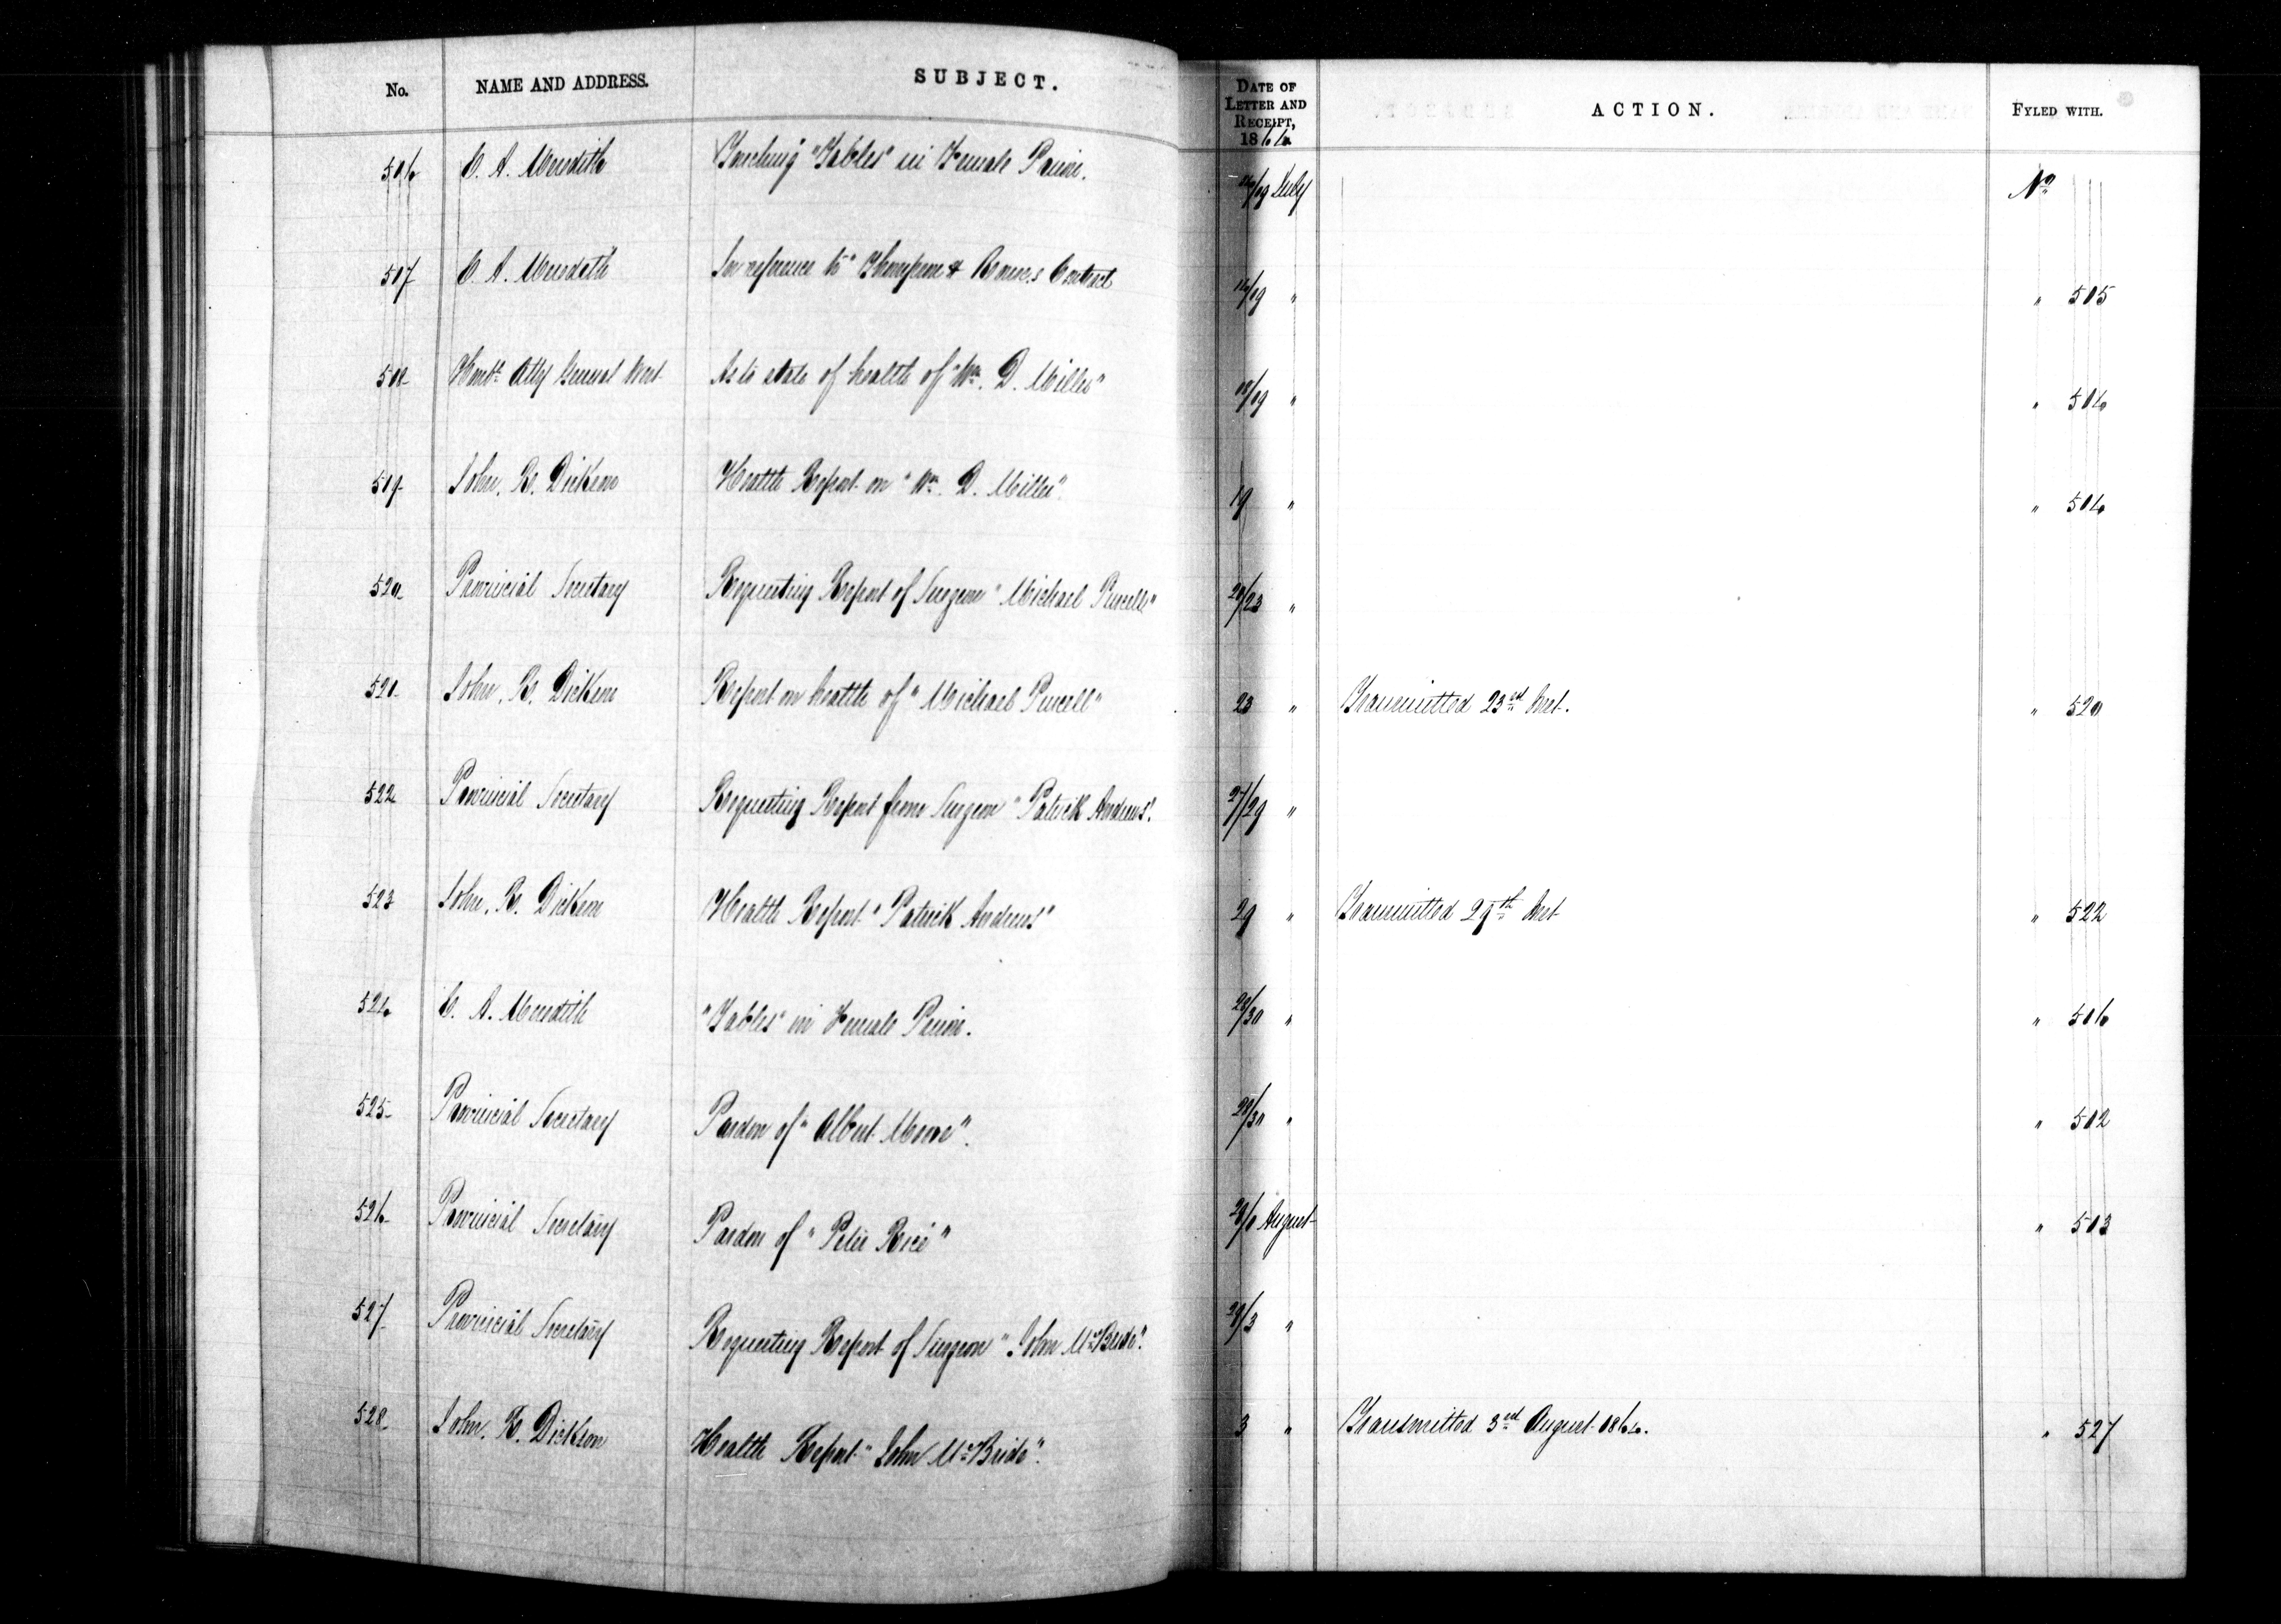 No. NAME AND ADDRESS. SUBJECT. DATE OF LETTER AND RECEIPT, 1864 ACTION. FYLED WITH.
516 E. A. Meredith Touching "Tables" in Female Prison. 16/19 July No
517 E. A. Meredith In reference to "Thompson & Contract 16/19 " " 515
518 Honble Atty General West As to state of health of "Wm. D. Miller" 18/19 " " 514
519 John. R. Dickson Health Report on "Wm. D. Miller". 19 " " 514
520 Provincial Secretary Requesting Report of Surgeon "Michael Purcell" 20/23 "
521 John. R. Dickson Report on health of "Michael Purcell" 23 " Transmitted 23rd Inst. " 520
522 Provincial Secretary Requesting Report from Surgeon "Patrick Andrews". 27/29 "
523 John. R. Dickson Health Report "Patrick Andrews" 29 " Transmitted 29th Inst " 522
524 E. A. Meredith "Tables" in Female Prison. 28/30 " " 516
525 Provincial Secretary Pardon of "Albert Moore". 29/30 " " 512
526 Provincial Secretary Pardon of "Peter Rice" 29/1 August " 513
527 Provincial Secretary Requesting Report of Surgeon "John McBride". 29/3 "
528 John. R. Dickson Health Report "John McBride". 3 " Transmitted 3rd August 1864. " 527